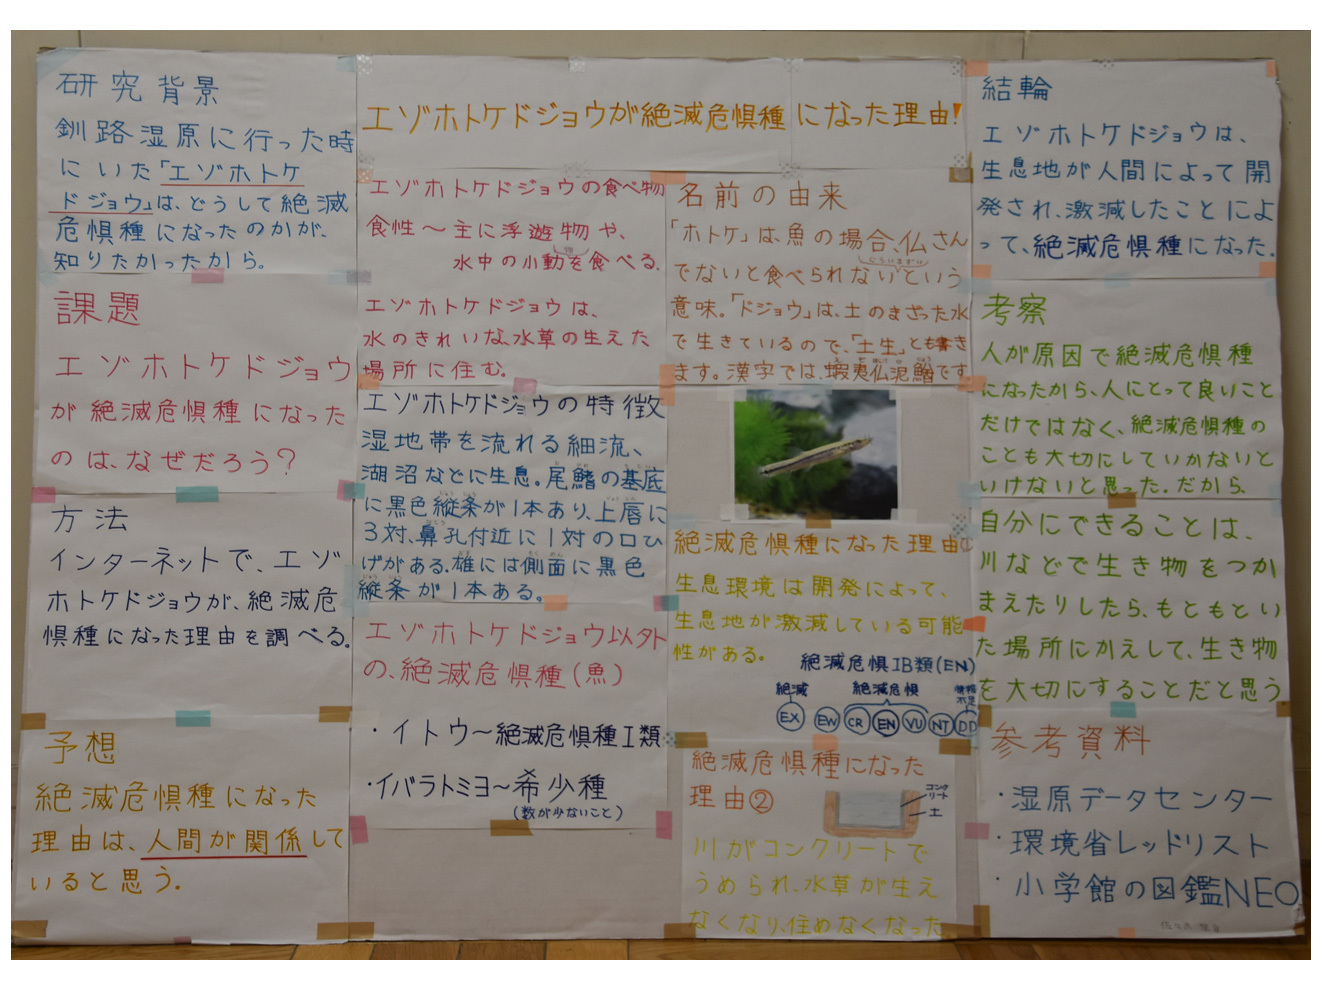 エゾホトケドジョウが絶滅危惧種になった理由!
研究背景
釧路湿原に行った時
にいた「エゾホトケ
ドジョウ」は、どうして絶滅
危惧種になったのかが、
知りたかったから。
課題
エゾホトケドジョウ
が絶滅危惧種になった
のは、なぜだろう?
方法
インターネットで、エゾ
ホトケドジョウが、絶滅危
惧種になった理由を調べる。
予想
絶滅危惧種になった
理由は、人間が関係して
いると思う。
エゾホトケドジョウの食べ物
食性～主に浮遊物や、
水中の小動を食べる。
エゾホトケドジョウは、
水のきれいな水草の生えた
場所に住む。
エゾホトケドジョウの特徴
湿地帯を流れる細流、
湖沼などに生息。尾鰭の基底
に黒色縦条が1本あり、上唇に
3対、鼻孔付近に1対の口ひ
げがある。雄には側面に黒色
縦条が1本ある。
エゾホトケドジョウ以外
の、絶滅危惧種(魚)
・イトウ～絶滅危惧種I類
・イバラトミヨ～希少種
(数が少ないこと)
名前の由来
「ホトケ」は、魚の場合、仏さん
でないと食べられないという
意味。「ドジョウ」は、土のまざった水
で生きているので、「土生」とも書き
ます。漢字では、蝦夷仏泥鰌です
絶滅危惧種になった理由①
生息環境は開発によって、
生息地が激減している可能
性がある。
絶滅危惧IB類(EN)
絶滅 絶滅危惧 情報不足
EX EW CR EN VU NT DD
絶滅危惧種になった
理由②
コンクリート
土
川がコンクリートで
うめられ、水草が生え
なくなり、住めなくなった
結輪
エゾホトケドジョウは、
生息地が人間によって開
発され、激減したことによ
って、絶滅危惧種になった。
考察
人が原因で絶滅危惧種
になったから、人にとって良いこと
だけではなく、絶滅危惧種の
ことも大切にしていかないと
いけないと思った。だから
自分にできることは、
川などで生き物をつか
まえたりしたら、もともとい
た場所にかえして、生き物
を大切にすることだと思う
参考資料
・湿原データセンター
・環境省レッドリスト
・小学館の図鑑NEO